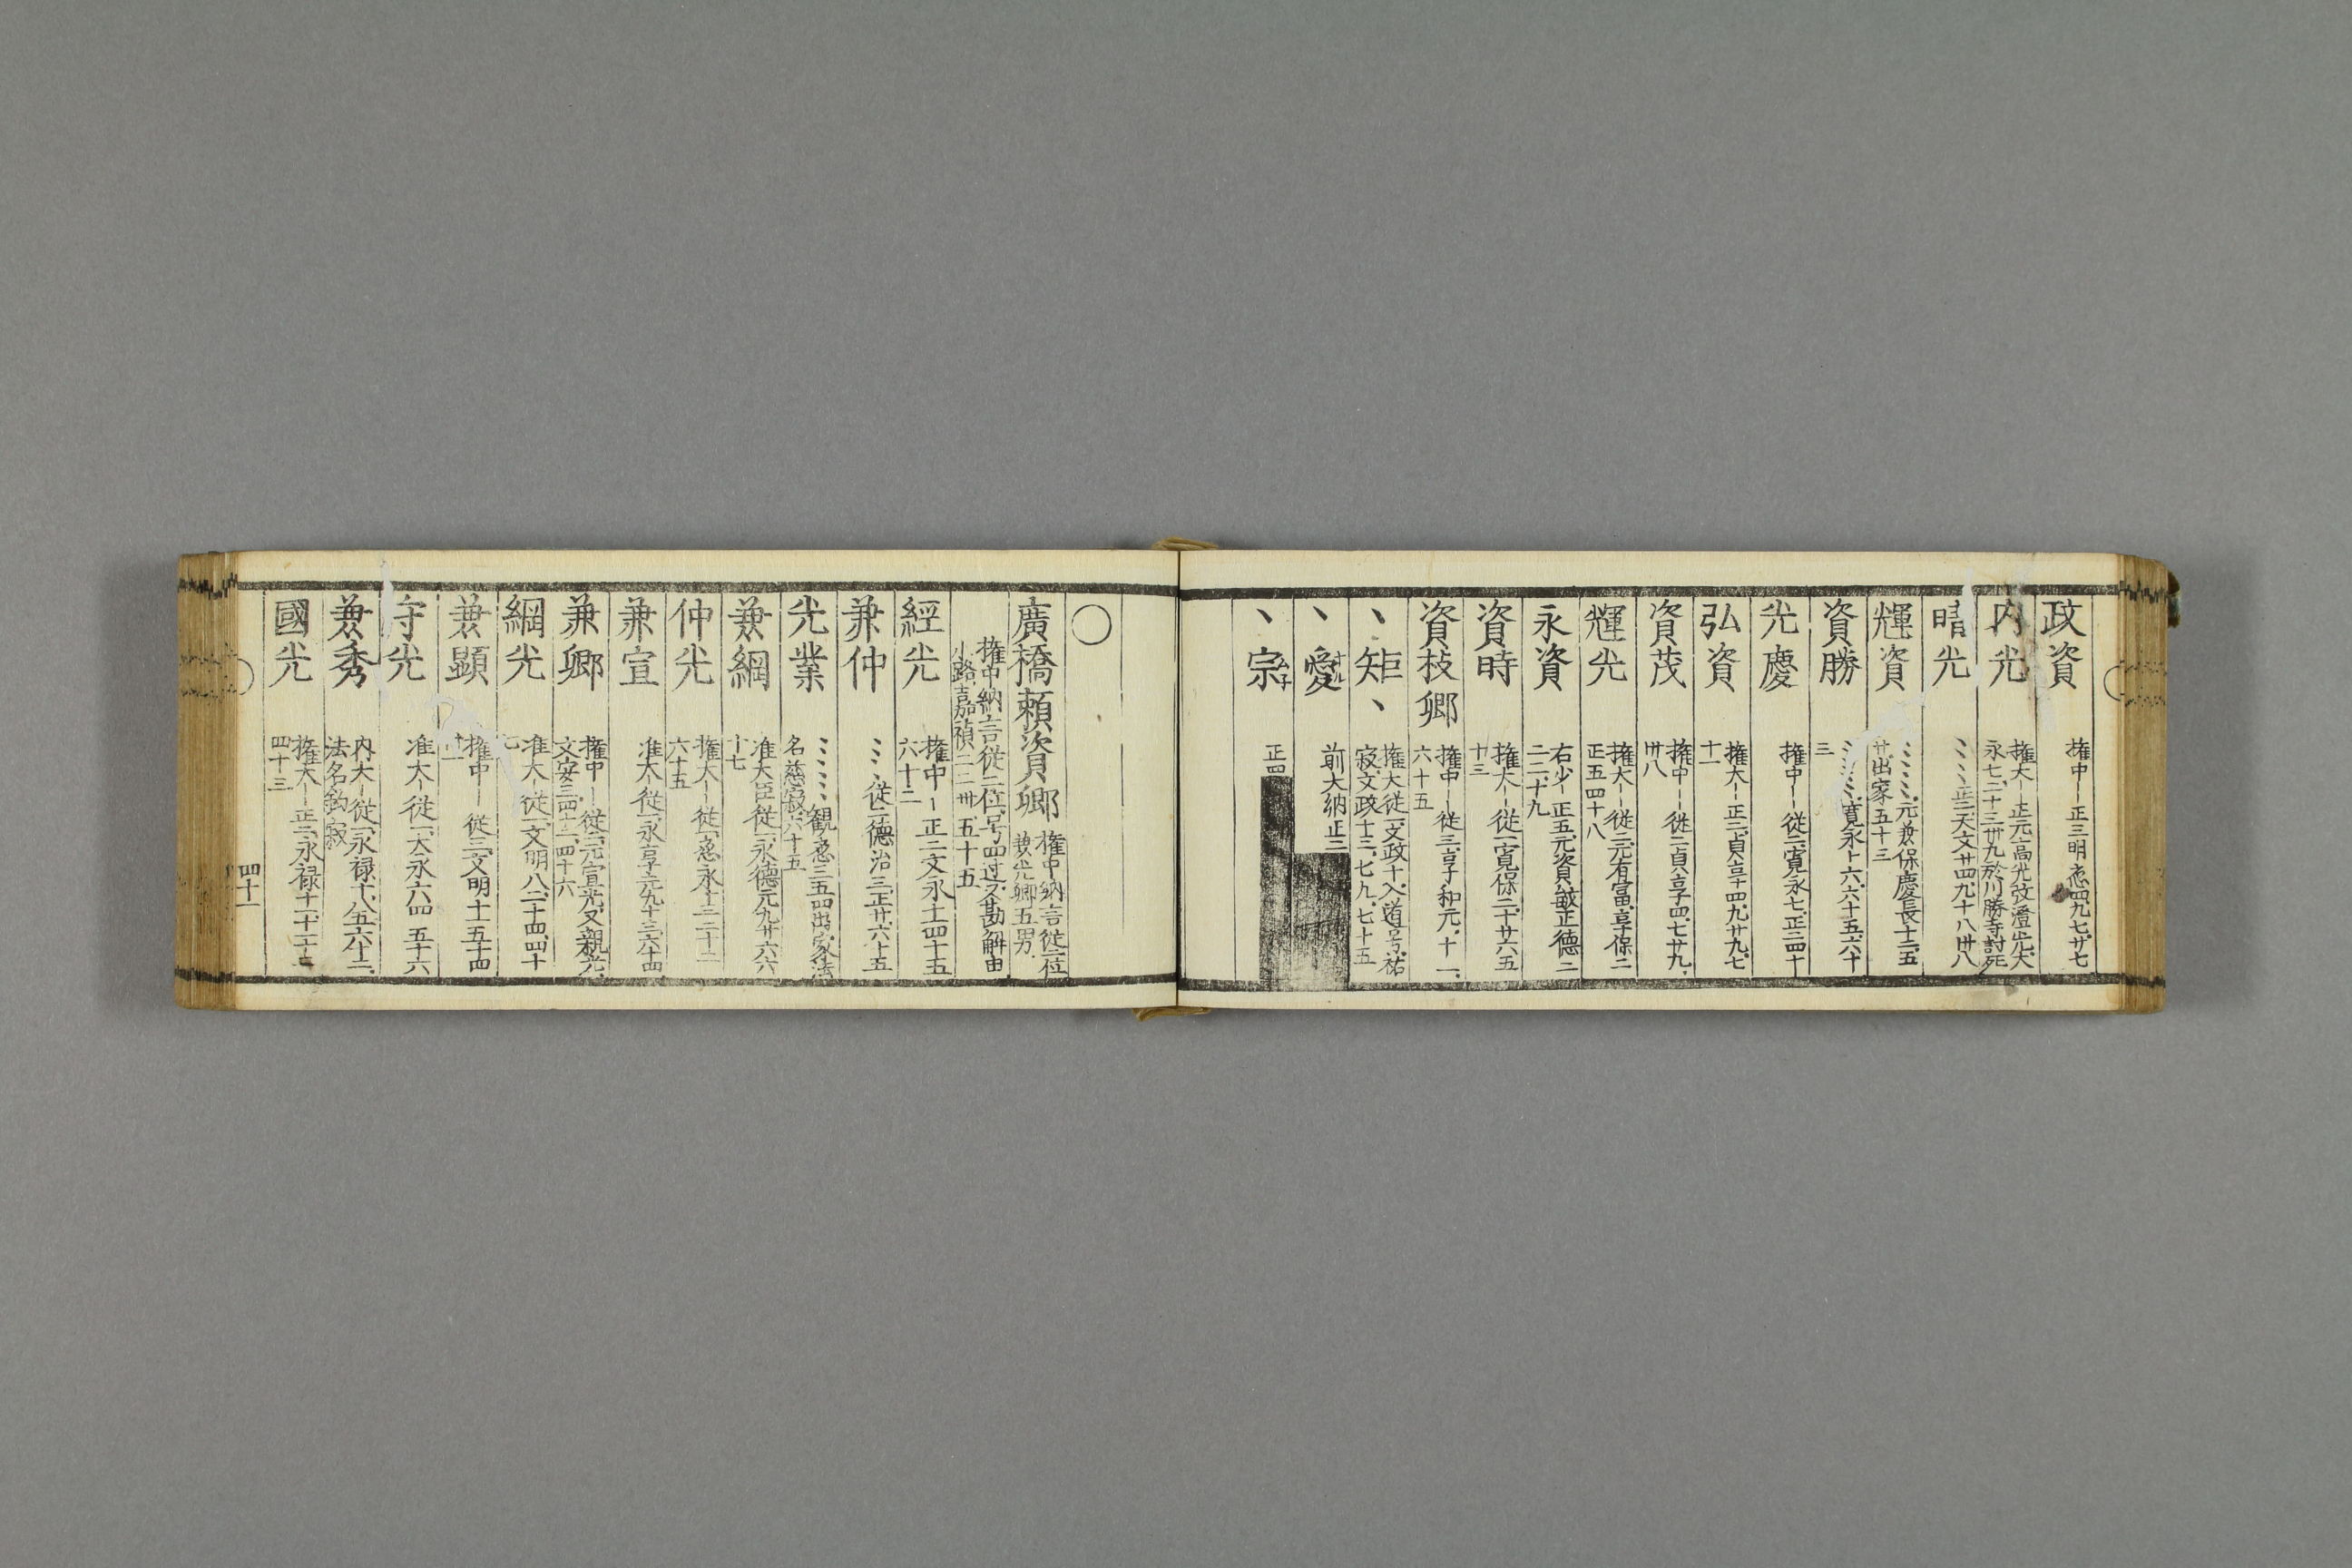 政資 権中〡正三明應四九七廿七
内光 権大〡正元高光改澄光大
永七二十三卅九於川勝寺討死
晴光 ミミ正二天文廿四九十八卅八
輝資 ミミミ元兼保慶長十二五
廿出家五十三
資勝 ミミミ寛永十六六十五六十
三
光慶 権中〡従二寛永七正二四十
弘資 権大〡正二貞享四九廿九七
十一
資茂 権中〡従二貞享四七廿九
卅八
輝光 権大〡従二元有富享保二
正五四十八
永資 右少〡正五元資敏正徳二
二二十九
資時 権大〡従一寛保二十廿六五
十三
資枝卿 権中〡従三享和元十一
六十五
丶矩丶 権大従一文政十入道号祐
寂文政十三七九七十五
丶愛 前大納正二
丶宗 正四
〇
廣橋頼資卿 権中納言従二位
兼光卿五男
権中納言従二位号四辻又勘解由
小路嘉禎二二卅五十五
經光 権中〡正二文永十一四十五
六十二
兼仲 ミミ従二徳治三正廿六十五
光業 ミミミミ観應三五四出家法
名慈寂六十五
兼綱 准大臣従一永徳元九廿六六
十七
仲光 権大〡従一應永十三二十二
六十五
兼宣 准大〡従一永享元九十三六十四
兼卿 権中〡従二元宣光又親光
文安三四十二四十六
綱光 准大〡従一文明八二十四四十
七
兼顕 権中〡従三文明十一五十四
卅一
守光 准大〡従一大永六四 五十六
兼秀 内大〡従一永禄十八五六十二
法名鈎寂
國光 権大〡正二永禄十一十一十二
四十三
四十一